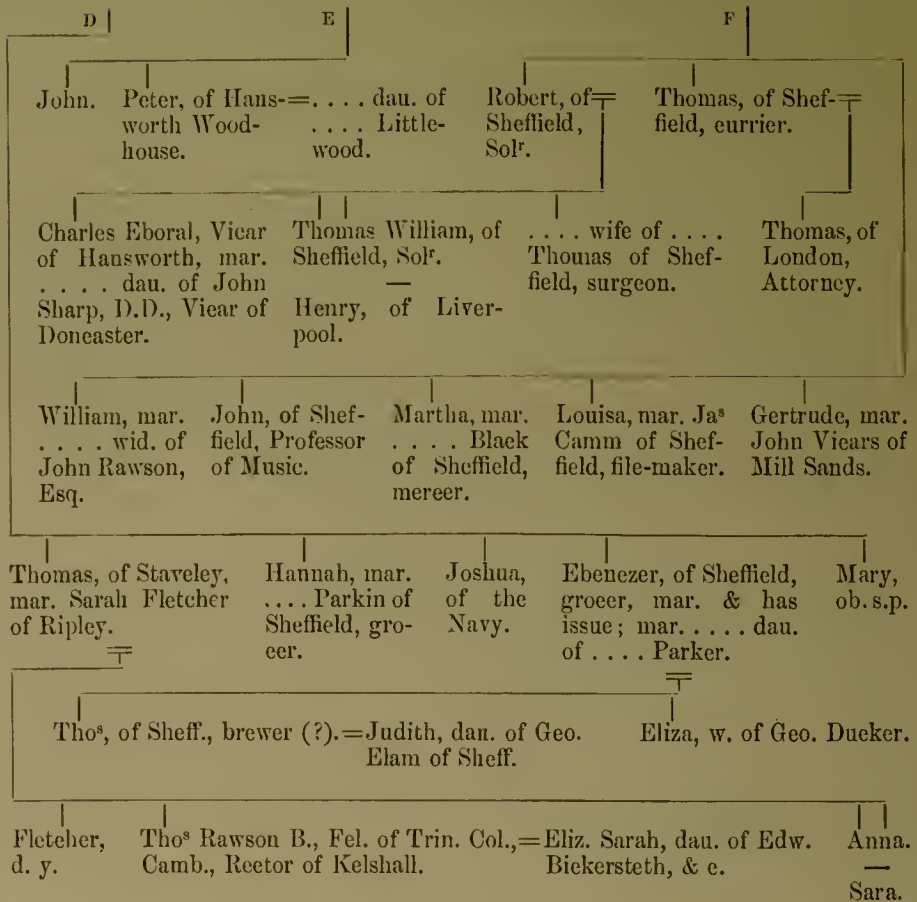 D
E
F
John.
Peter, of Hans-
worth Wood-
house.
=. . . . dau. of
. . . . Little-
wood.
Robert, of
Sheffield,
Solʳ.
Thomas, of Shef-
field, currier.
Charles Eboral, Vicar
of Hansworth, mar.
. . . . dau. of John
Sharp, D.D., Vicar of
Doncaster.
Thomas William, of
Sheffield, Solʳ.
—
Henry, of Liver-
pool.
. . . . wife of . . . .
Thomas of Shef-
field, surgeon.
Thomas, of
London,
Attorney.
William, mar.
. . . . wid. of
John Rawson,
Esq.
John, of Shef-
field, Professor
of Music.
Martha, mar.
. . . . Black
of Sheffield,
mercer.
Louisa, mar. Jaˢ
Camm of Shef-
field, file-maker.
Gertrude, mar.
John Vicars of
Mill Sands.
Thomas, of Staveley,
mar. Sarah Fletcher
of Ripley.
Hannah, mar.
. . . . Parkin of
Sheffield, gro-
cer.
Joshua,
of the
Navy.
Ebenezer, of Sheffield,
grocer, mar. & has
issue; mar. . . . . dau.
of . . . . Parker.
Mary,
ob. s.p.
Thoˢ, of Sheff., brewer (?).=Judith, dau. of Geo.
Elam of Sheff.
Eliza, w. of Geo. Ducker.
Fletcher,
d. y.
Thoˢ Rawson B., Fel. of Trin. Col.,=Eliz. Sarah, dau. of Edw.
Camb., Rector of Kelshall.
Bickersteth, & c.
Anna.
—
Sara.